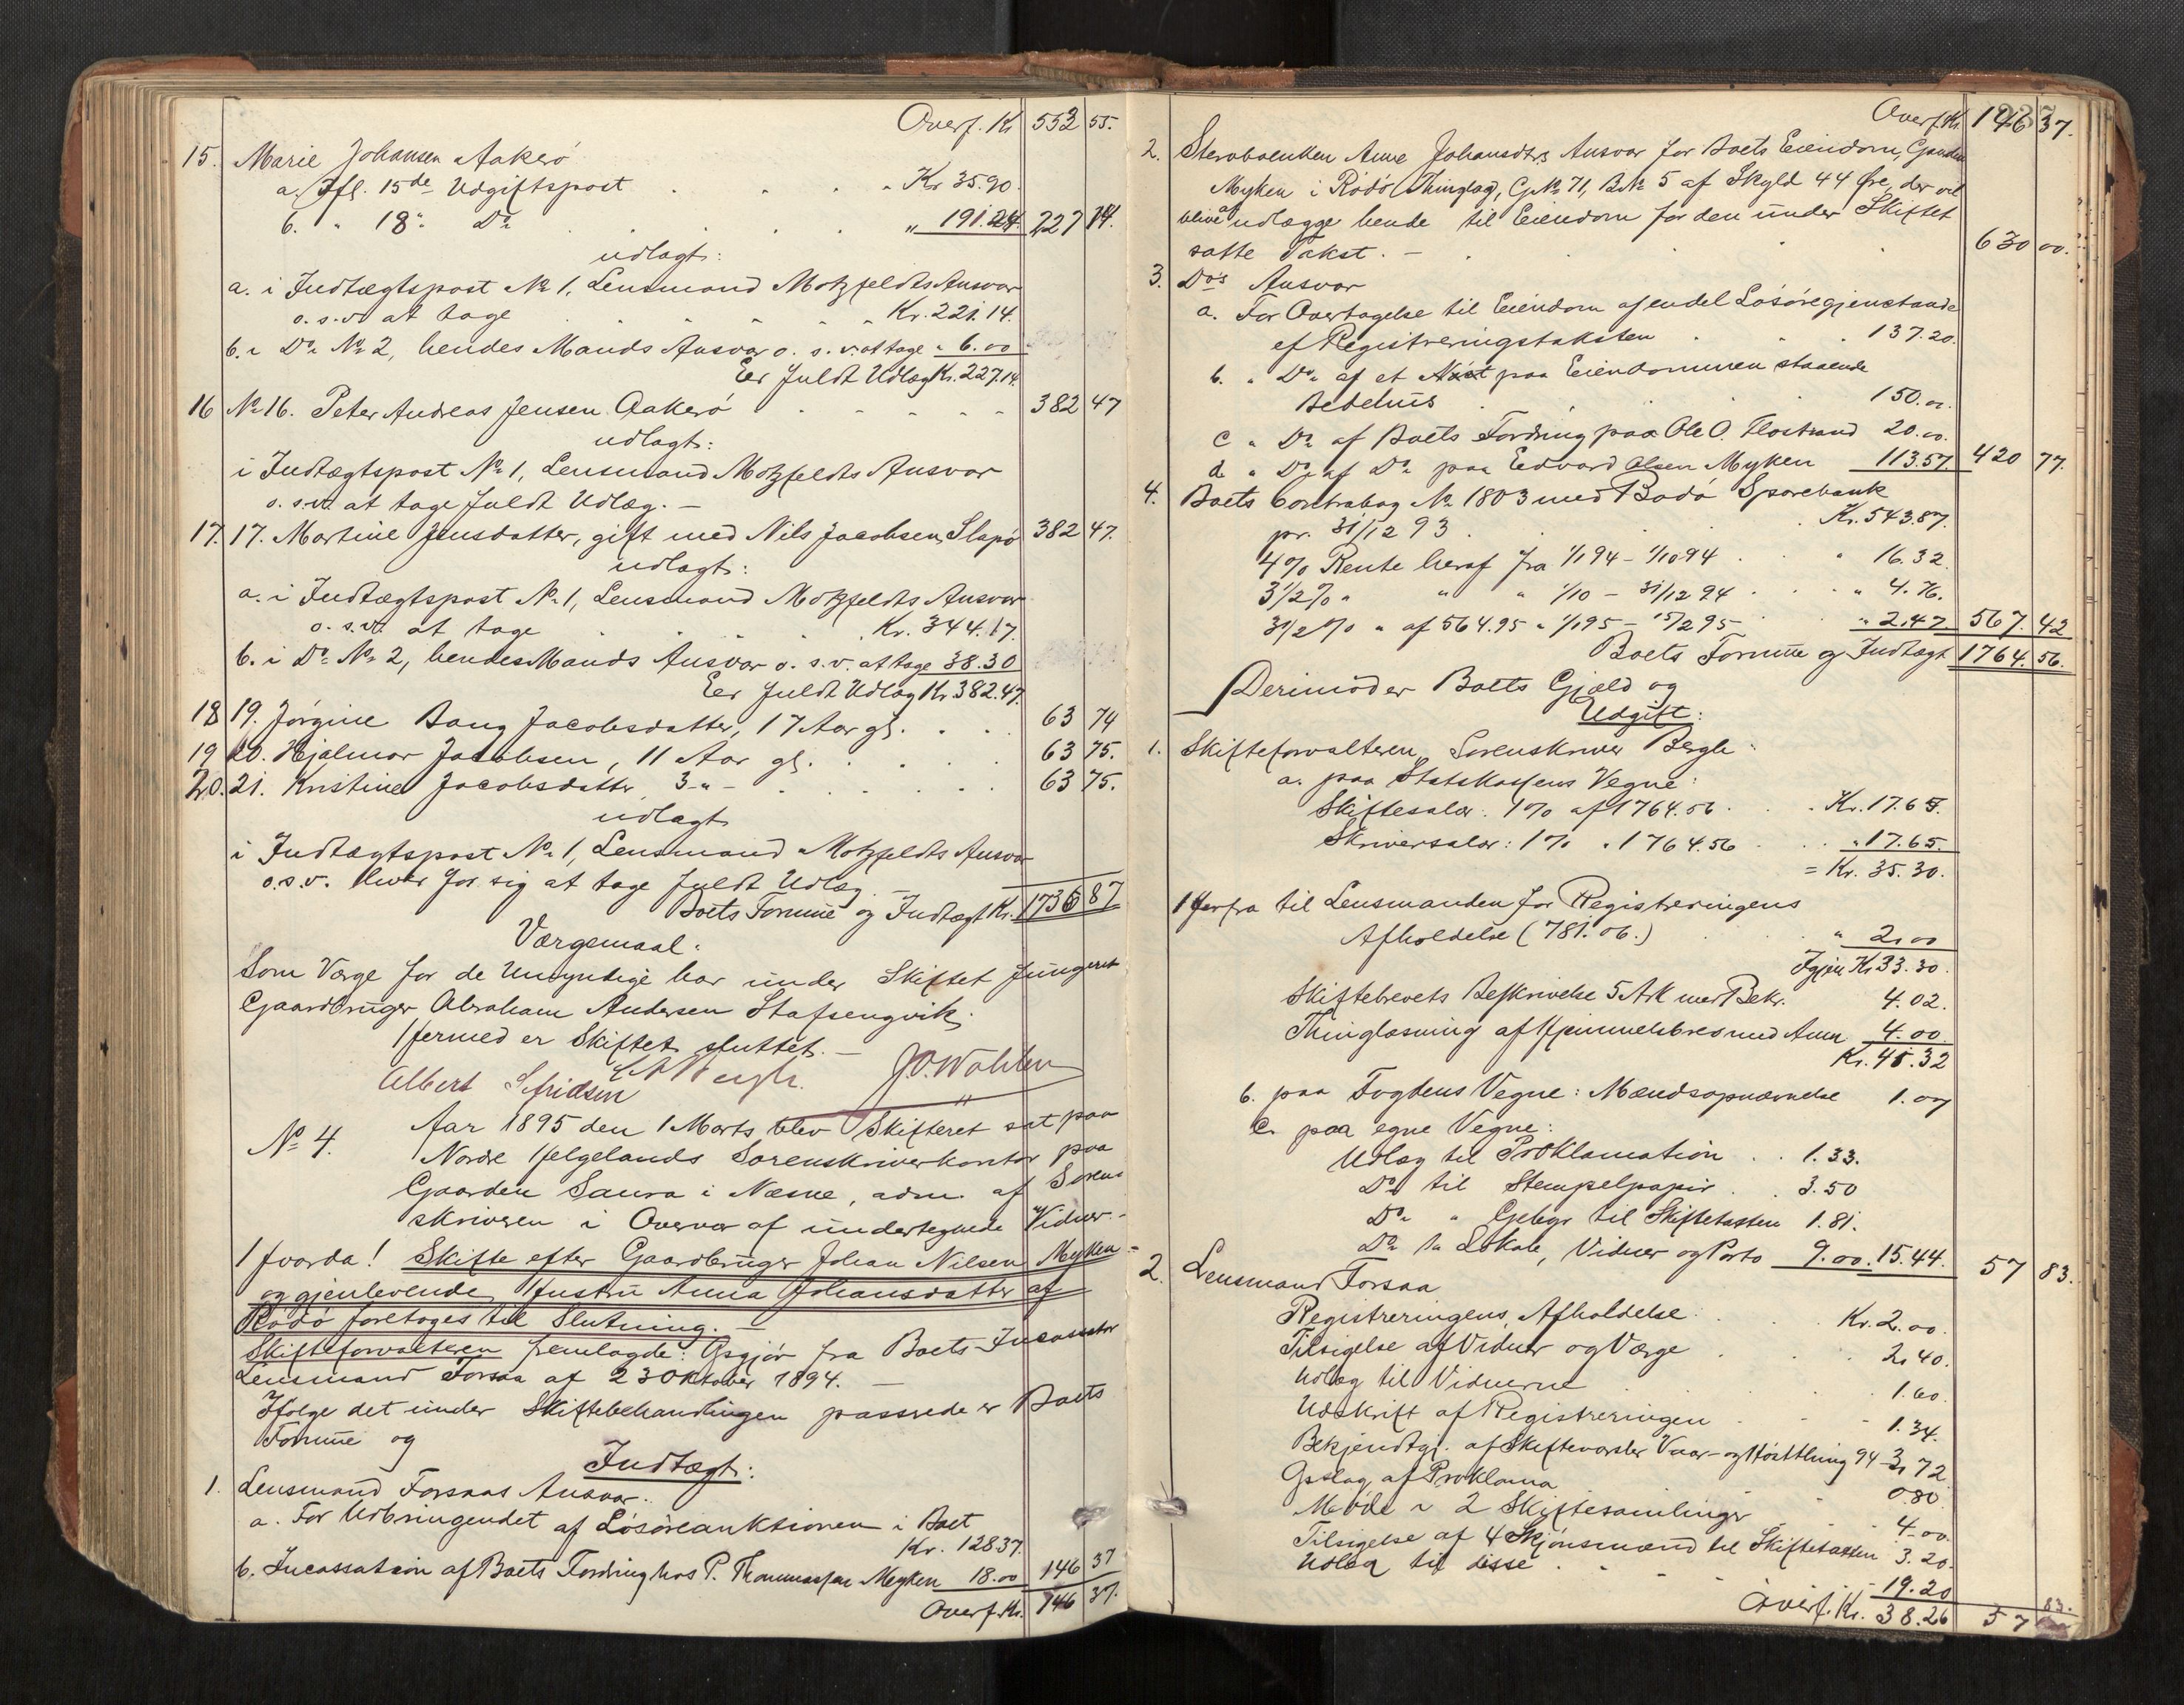 Overf. Kr 552 55.
15. Marie Johansen Aakerö
a. Ifl. 15de Udgiftspost . . . . Kr 35.90.
b. " 18" Do . . . . " 191.24. 227 14.
udlagt:
a. i Indtægtspost No 1, Lensmand Motzfeldts Ansvar
o. s. v. at tage . . . . Kr. 221.14.
b. i Do No 2, hendes Mands Ansvar o. s. v. at tage " 6.00
Er fuldt Udlæg Kr. 227.14.
16 No 16. Peter Andreas Jensen Aakerö . . . . 382 47
udlagt:
i Indtægtspost No 1, Lensmand Motzfeldts Ansvar
o. s. v. at tage fuldt Udlæg. –
17. 17. Martine Jensdatter, gift med Nils Jacobsen Slapö 382 47.
udlagt:
a. i Indtægtspost No 1, Lensmand Motzfeldts Ansvar
o. s. v. at tage . . . . Kr. 344.17.
b. i Do No 2, hendes Mands Ansvar o. s. v. at tage 38.30
Er fuldt Udlæg Kr 382.47.
18 19. Jörgine Bang Jacobsdatter, 17 Aar gl. . . . 63 74
19 20. Hjalmar Jacobsen, 11 Aar gl. . . . 63 75.
20. 21. Kristine Jacobsdatter 3 " – . . . 63 75.
udlagt
i Indtægtspost No 1, Lensmand Motzfeldts Ansvar
o. s. v. hver for sig at tage fuldt Udlæg. –
Boets Formue og Indtægt Kr. 1736 87
Værgemaal.
Som Værge for de Umyndige har under Skiftet fungeret
Gaardbruger Abraham Andersen Stafsengvik.
Hermed er Skiftet sluttet. –
Bergh. J. O. Wahlen
Albert Sefridsen
No 4. Aar 1895 den 1 Marts blev Skifteret sat paa
Nordre Helgelands Sorenskriverkontor paa
Gaarden Saura i Næsne, adm. af Soren-
skriveren i Overvær af undertegnede Vidner. –
Hvorda! Skifte efter Gaardbruger Johan Nilsen Myken
og gjenlevende Hustru Anna Johansdatter af
Rödö foretoges til Slutning. –
Skifteforvalteren fremlagde: Opgjör fra Boets Incassator
Lensmand Forsaa af 23 Oktober 1894. –
Ifölge det under Skiftebehandlingen passerede er Boets
Formue og
Indtægt:
1. Lensmand Forsaas Ansvar.
a. For Udbringendet af Lösöreauktionen i Boet
Kr. 128.37.
b. Incassation af Boets Fordring hos P. Thomassen Myken 18.00 146 37
Overf. Kr. 146 37.
Overf. Kr. 146 37.
2. Stervboenken Anne Johansdtrs Ansvar for Boets Eiendom, Gaarden
Myken i Rödö Thinglag, G. No 71, B. No 5 af Skyld 44 Öre, der vil
blive at udlægge hende til Eiendom for den under Skiftet
satte Takst. – . . . 630 00.
3. Do's Ansvar
a. For Overtagelse til Eiendom af endel Lösöregjenstande
ef Registreringstaksten . . . 137.20.
b. " Do af et Nöst paa Eiendommen staaende
Bedehus . . . 150.00.
c " Do af Boets Fordring paa Ole O. Flostrand 20.00.
d. " Do af Do paa Edvard Olsen Myken 113.57. 420 77.
4. Boets Contrabog No 1803 med Bodö Sparebank
pr. 31/12 93 . . . Kr. 543.87.
4 % Rente heraf fra 1/1 94 – 1/10 94 . . " 16.32.
3 1/2 % " " " 1/10 – 31/12 94 . . " 4.76.
3 1/2 % " af 564.95 " 1/1 95 – 15/2 95 " 2.47. 567. 42
Boets Formue og Indtægt 1764. 56.
Derimod er Boets Gjæld og
Udgift:
1. Skifteforvalteren, Sorenskriver Bergh:
a. paa Statskassens Vegne:
Skiftesalær. 1 % af 1764.56 . . Kr. 17.65.
Skriversalær: 1 % " 1764.56 . . " 17.65.
= Kr. 35.30.
Herfra til Lensmanden for Registreringens
Afholdelse (781.06.) " 2.00
Igjen Kr 33.30.
Skiftebrevets Beskrivelse 5 Ark med Bekr. 4.02.
Thinglæsning af Hjemmelsbrev med Anm. 4.00.
Kr. 41.32
b. paa Fogdens Vegne: Mændsopnævnelse 1.07
c. paa egne Vegne:
Udlæg til Proklamation . . 1.33.
Do til Stempelpapir . . 3.50
Do " Gebyr til Skiftetaksten 1.81.
Do " Lokale, Vidner og Porto 9.00. 15.44. 57 83.
2. Lensmand Forsaa
Registreringens Afholdelse . . Kr. 2.00.
Tilsigelse af Vidner og Værge . . 2.40.
Udlæg til Vidnerne . . 1.60.
Udskrift af Registreringen . . 1.34.
Bekjendtgj. af Skiftevarsler Vaar- og Höstthing 94 3.72
Opslag af Proklama 0.80.
Möde i 2 Skiftesamlinger 4.00.
Tilsigelse af 4 Skjönsmænd til Skiftetaksten 3.20.
Udlæg til disse . . . 19.20
Overf. Kr. 38.26 57 83.